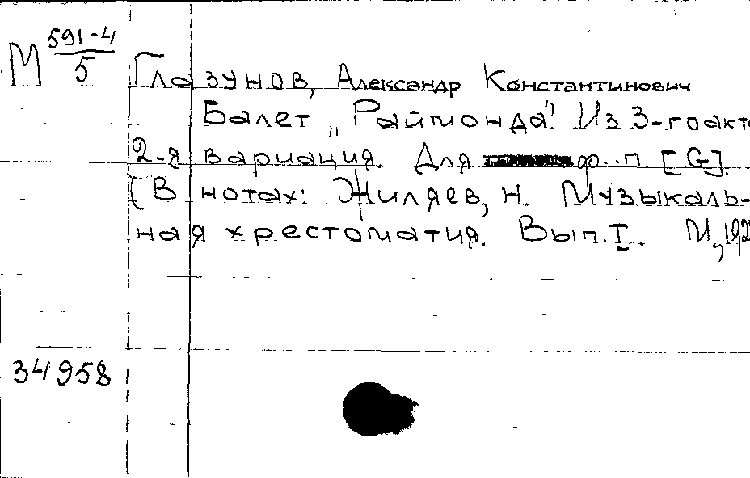 М 591-4/5
Глазунов, Александр Константинович
Балет „Раймонда". Из 3-го акта
2-я вариация. Для ф.-п [G].
[В нотах: Жиляев, Н. Музыкаль-
ная хрестоматия. Вып. I. М, 192
34958